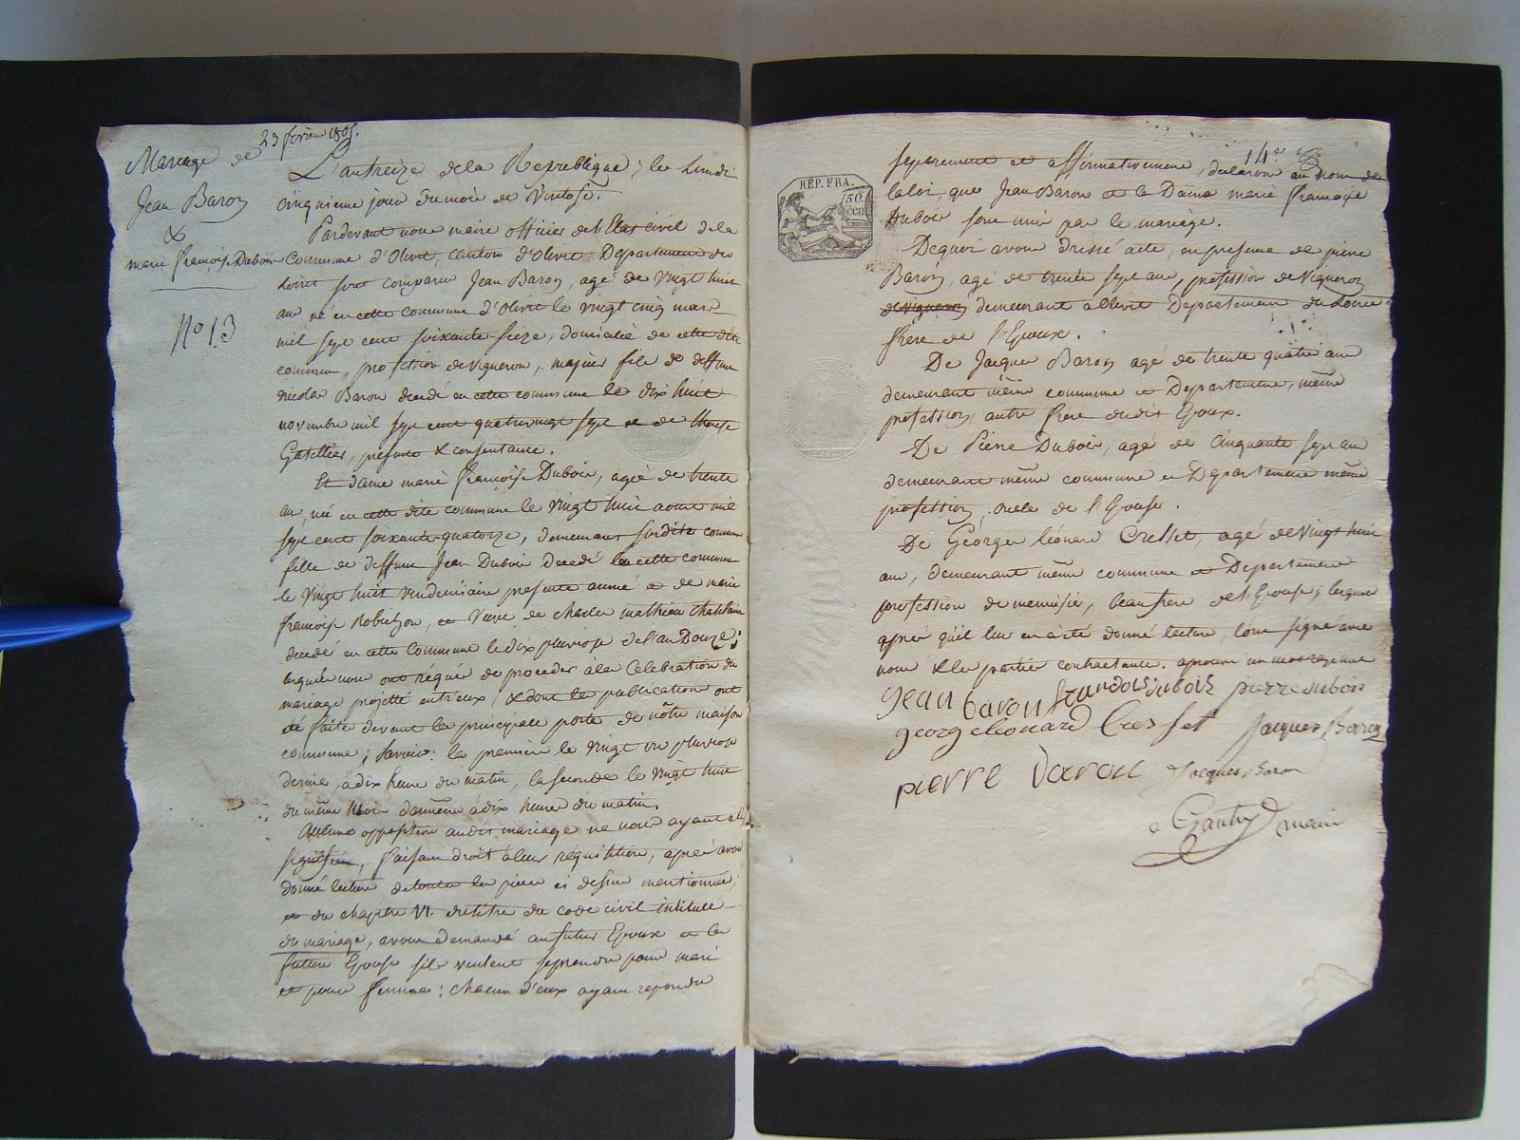 23 fevrier 1805.
Mariage de
Jean Baron
&
marie françoise Dubois
No 13
L'an treize de la Republique, le Lundi
cinquieme jour du mois de Ventose.
Pardevant nous maire officier de l'Etat civil de la
Commune d'Olivet, canton d'Olivet, Departement du
Loiret sont comparu Jean Baron, agé de Vingt huit
ans né en cette commune d'Olivet le vingt cinq mars
mil sept cent soixante seize, domicilié de cette dite
commune, profession de vigneron, majeur fils de deffunt
nicolas Baron decedé en cette commune le dix huit
novembre mil sept cent quatrevingt sept et de therese
Gatellier, presente & consentante.
Et dame marie françoise Dubois, agée de trente
ans, née en cette dite commune le vingt huit aout mil
sept cent soixante quatorze, demeurant susdite commune
fille de deffunt Jean Dubois decedé en cette commune
le Vingt huit vendemiaire presente année et de marie
françoise Robichon, et Veuve de charles mathieu
decedé en cette Commune le dix pluviose de l'an Douze;
lesquels nous ont réquis de proceder a la Celebration du
mariage projetté entr'eux, & dont les publications ont
été faites devant la principale porte de nôtre maison
commune; savoir: la premiere le vingt un pluviose
dernier, à dix heures du matin, la seconde le vingt huit
du même Mois a dix heures du matin.
Aucune opposition audit mariage ne nous ayant été
signifiée, faisant droit à leur réquisition, après avoir
donné lecture de toutes les pieces ci dessus mentionnées,
et du chapitre VI. du titre du code civil intitulé
du mariage, avons demandé au futur Epoux et a la
future Epouse s'ils veulent se prendre pour mari
et pour femme: chacun d'eux ayant repondu
14e
separement et affirmativement, declarons au nom de
la loi, que Jean Baron et la Dame marie françoise
Dubois sont unis par le mariage.
RÉP. FRA.
50.
De quoi avons dressé acte, en presence de pierre
Baron, agé de trente sept ans, profession de Vigneron
de vigneron demeurant à Olivet Departement du Loiret
frère de l'Epoux.
De Jacques Baron agé de trente quatre ans
demeurant même commune et Departement, même
profession, autre frere dudit Epoux.
De Pierre Dubois, agé de Cinquante sept ans
demeurant même commune et Departement même
profession, oncle de l'Epouse.
De George léonard Cresset, agé de Vingt huit
ans, demeurant même commune et Departement
profession de menuisier, beaufrere de l'Epouse; lesquels
après qu'il leur en a été donné lecture, l'ont signé avec
nous & les parties contractantes. aprouvé un mot rayé nul
jean baron françoise dubois pierre dubois
george léonard Cresset Jacques Baron
pierre baron Jacques Baron
Gautry maire